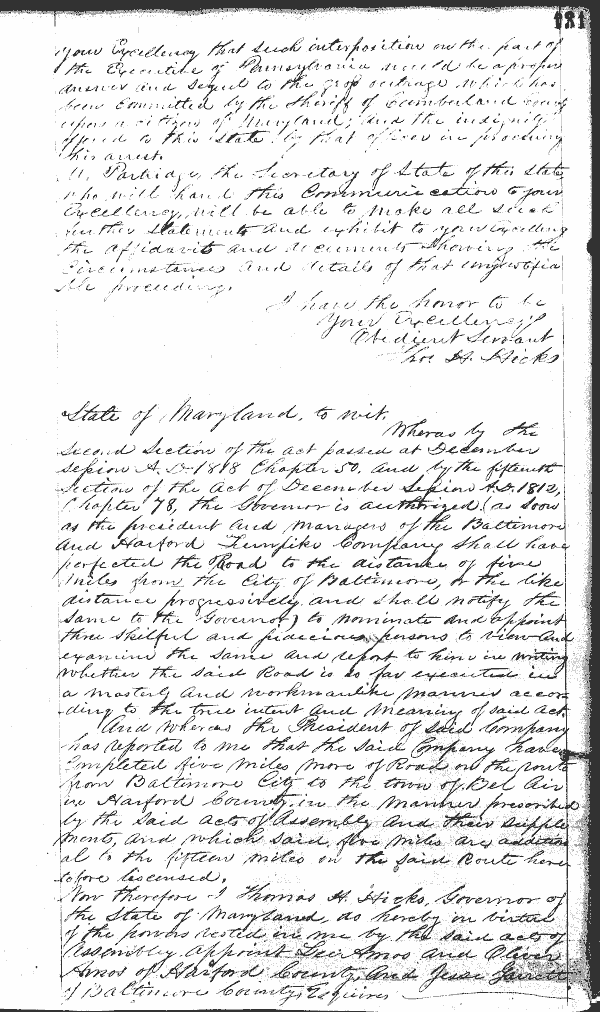 131
your Excellency that such interposition on the part of
the Executive of Pennsylvania would be a proper
answer and sequel to the gross outrage which has
been committed by the Sheriff of Cumberland County
upon a citizen of Maryland, and the indignity
offered to this State by that officer in procuring
his arrest.
Mr. Partridge, the Secretary of State of this State,
who will hand this Communication to your
Excellency, will be able to make all such
further Statements and exhibit to your Excellency
the affidavits and documents showing the
Circumstance and details of that unjustifia
ble proceeding.
I have the honor to be
Your Excellency's
Obedient Servant
Thos H. Hicks
State of Maryland, to wit.
Wheras by the
Second Section of the act passed at December
Session A.D. 1818 Chapter 50, and by the fifteenth
Section of the Act of December Session A.D. 1812,
Chapter 78, the Govenor is authorized (as soon
as the president and managers of the Baltimore
and Harford Turnpike Company shall have
perfected the Road to the distance of five
miles from the City of Baltimore, or the like
distance progressively and shall notify the
same to the Governor) to nominate and appoint
three skilful and judicious persons to view and
examine the same and report to him in writing
whether the said Road is so far executed in
a masterly and workmanlike manner accor-
-ding to the true intent and meaning of said act.
And Wheras the President of said Company
has reported to me that the said Company have
Completed five miles more of Road on the route
from Baltimore City to the town of Bel Air
in Harford County, in the manner prescribed
by the said acts of Assembly and their supple
ments, and which said five miles are addition
al to the fifteen miles on the said Route here
tofore liscensed.
Now therefore I Thomas H. Hicks, Governor of
the State of Maryland, do hereby in virtue
of the powers vested in me by the said acts of
Assembly appoint Lee Amos and Oliver
Amos of Harford County, and Jesse Jarrett
of Baltimore County, Esquires